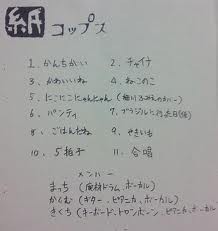 紙コップス
1. かんちがい 2. チャイナ
3. かわいいね 4. ねこのこ
5. にこにこにゃんにゃん
6. パンティ 7. ブラジルに行った日(仮)
8. ごはんたね 9. やきいも
10. 5拍子 11. 合唱
メンバー
まっち (廃材ドラム、ボーカル)
かくむ (ギター、ピアニカ、ボーカル)
きくち (キーボード、トロンボーン、ピアニカ、ボーカル)